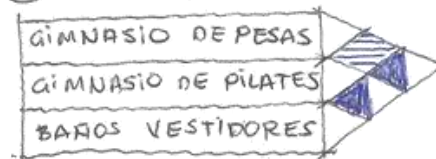 GIMNASIO DE PESAS
GIMNASIO DE PILATES
BAÑOS VESTIDORES